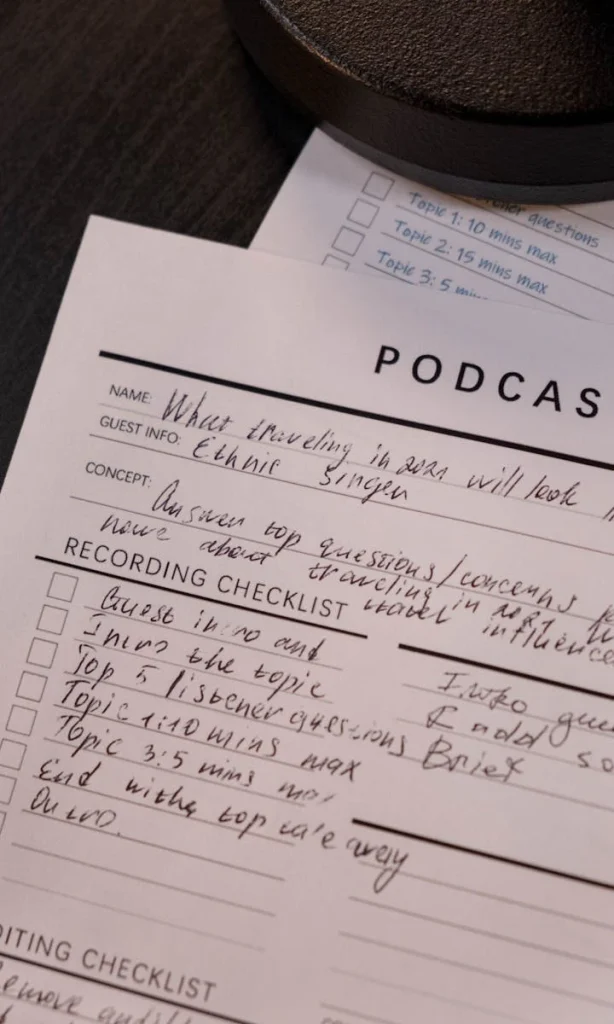 questions
Topic 1: 10 mins max
Topic 2: 15 mins max
Topic 3: 5
PODCAS
NAME: What traveling in 2021 will look
GUEST INFO: Ethnic Singer
CONCEPT: Answer top questions/concerns
have about traveling in 2021
travel influence
RECORDING CHECKLIST
Guest intro and
Intro the topic
Top 5 listener questions
Topic 1:10 mins max
Topic 3:5 mins
End with top
Outro.
Intro
add so
Brief
DITING CHECKLIST